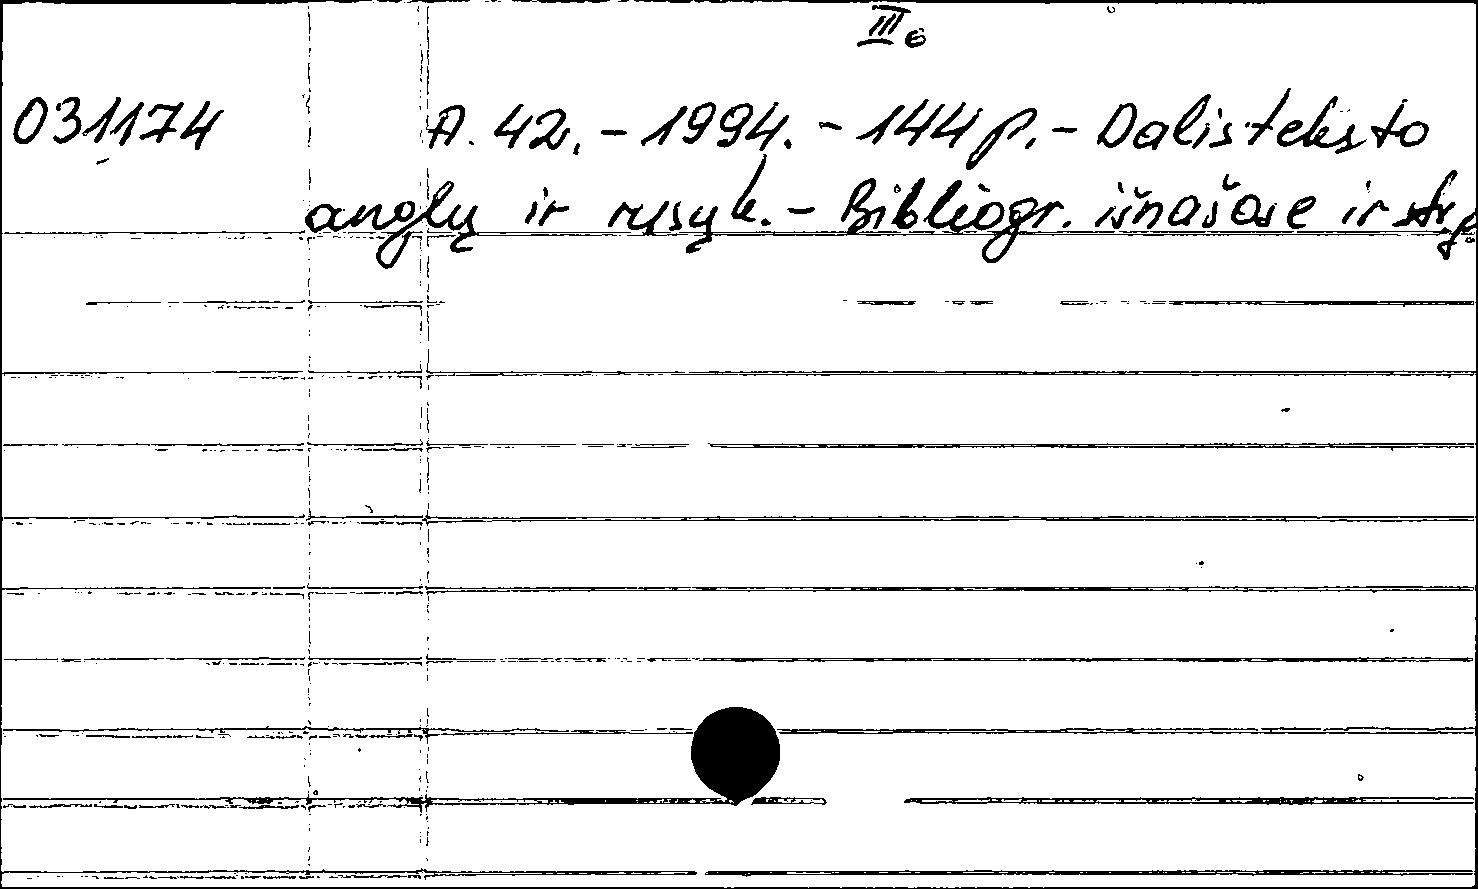 III6
031174 A. 42. - 1994. - 144 p. - Dalis teksto
anglų ir rusų k. - Bibliogr. išnašose ir str. p.